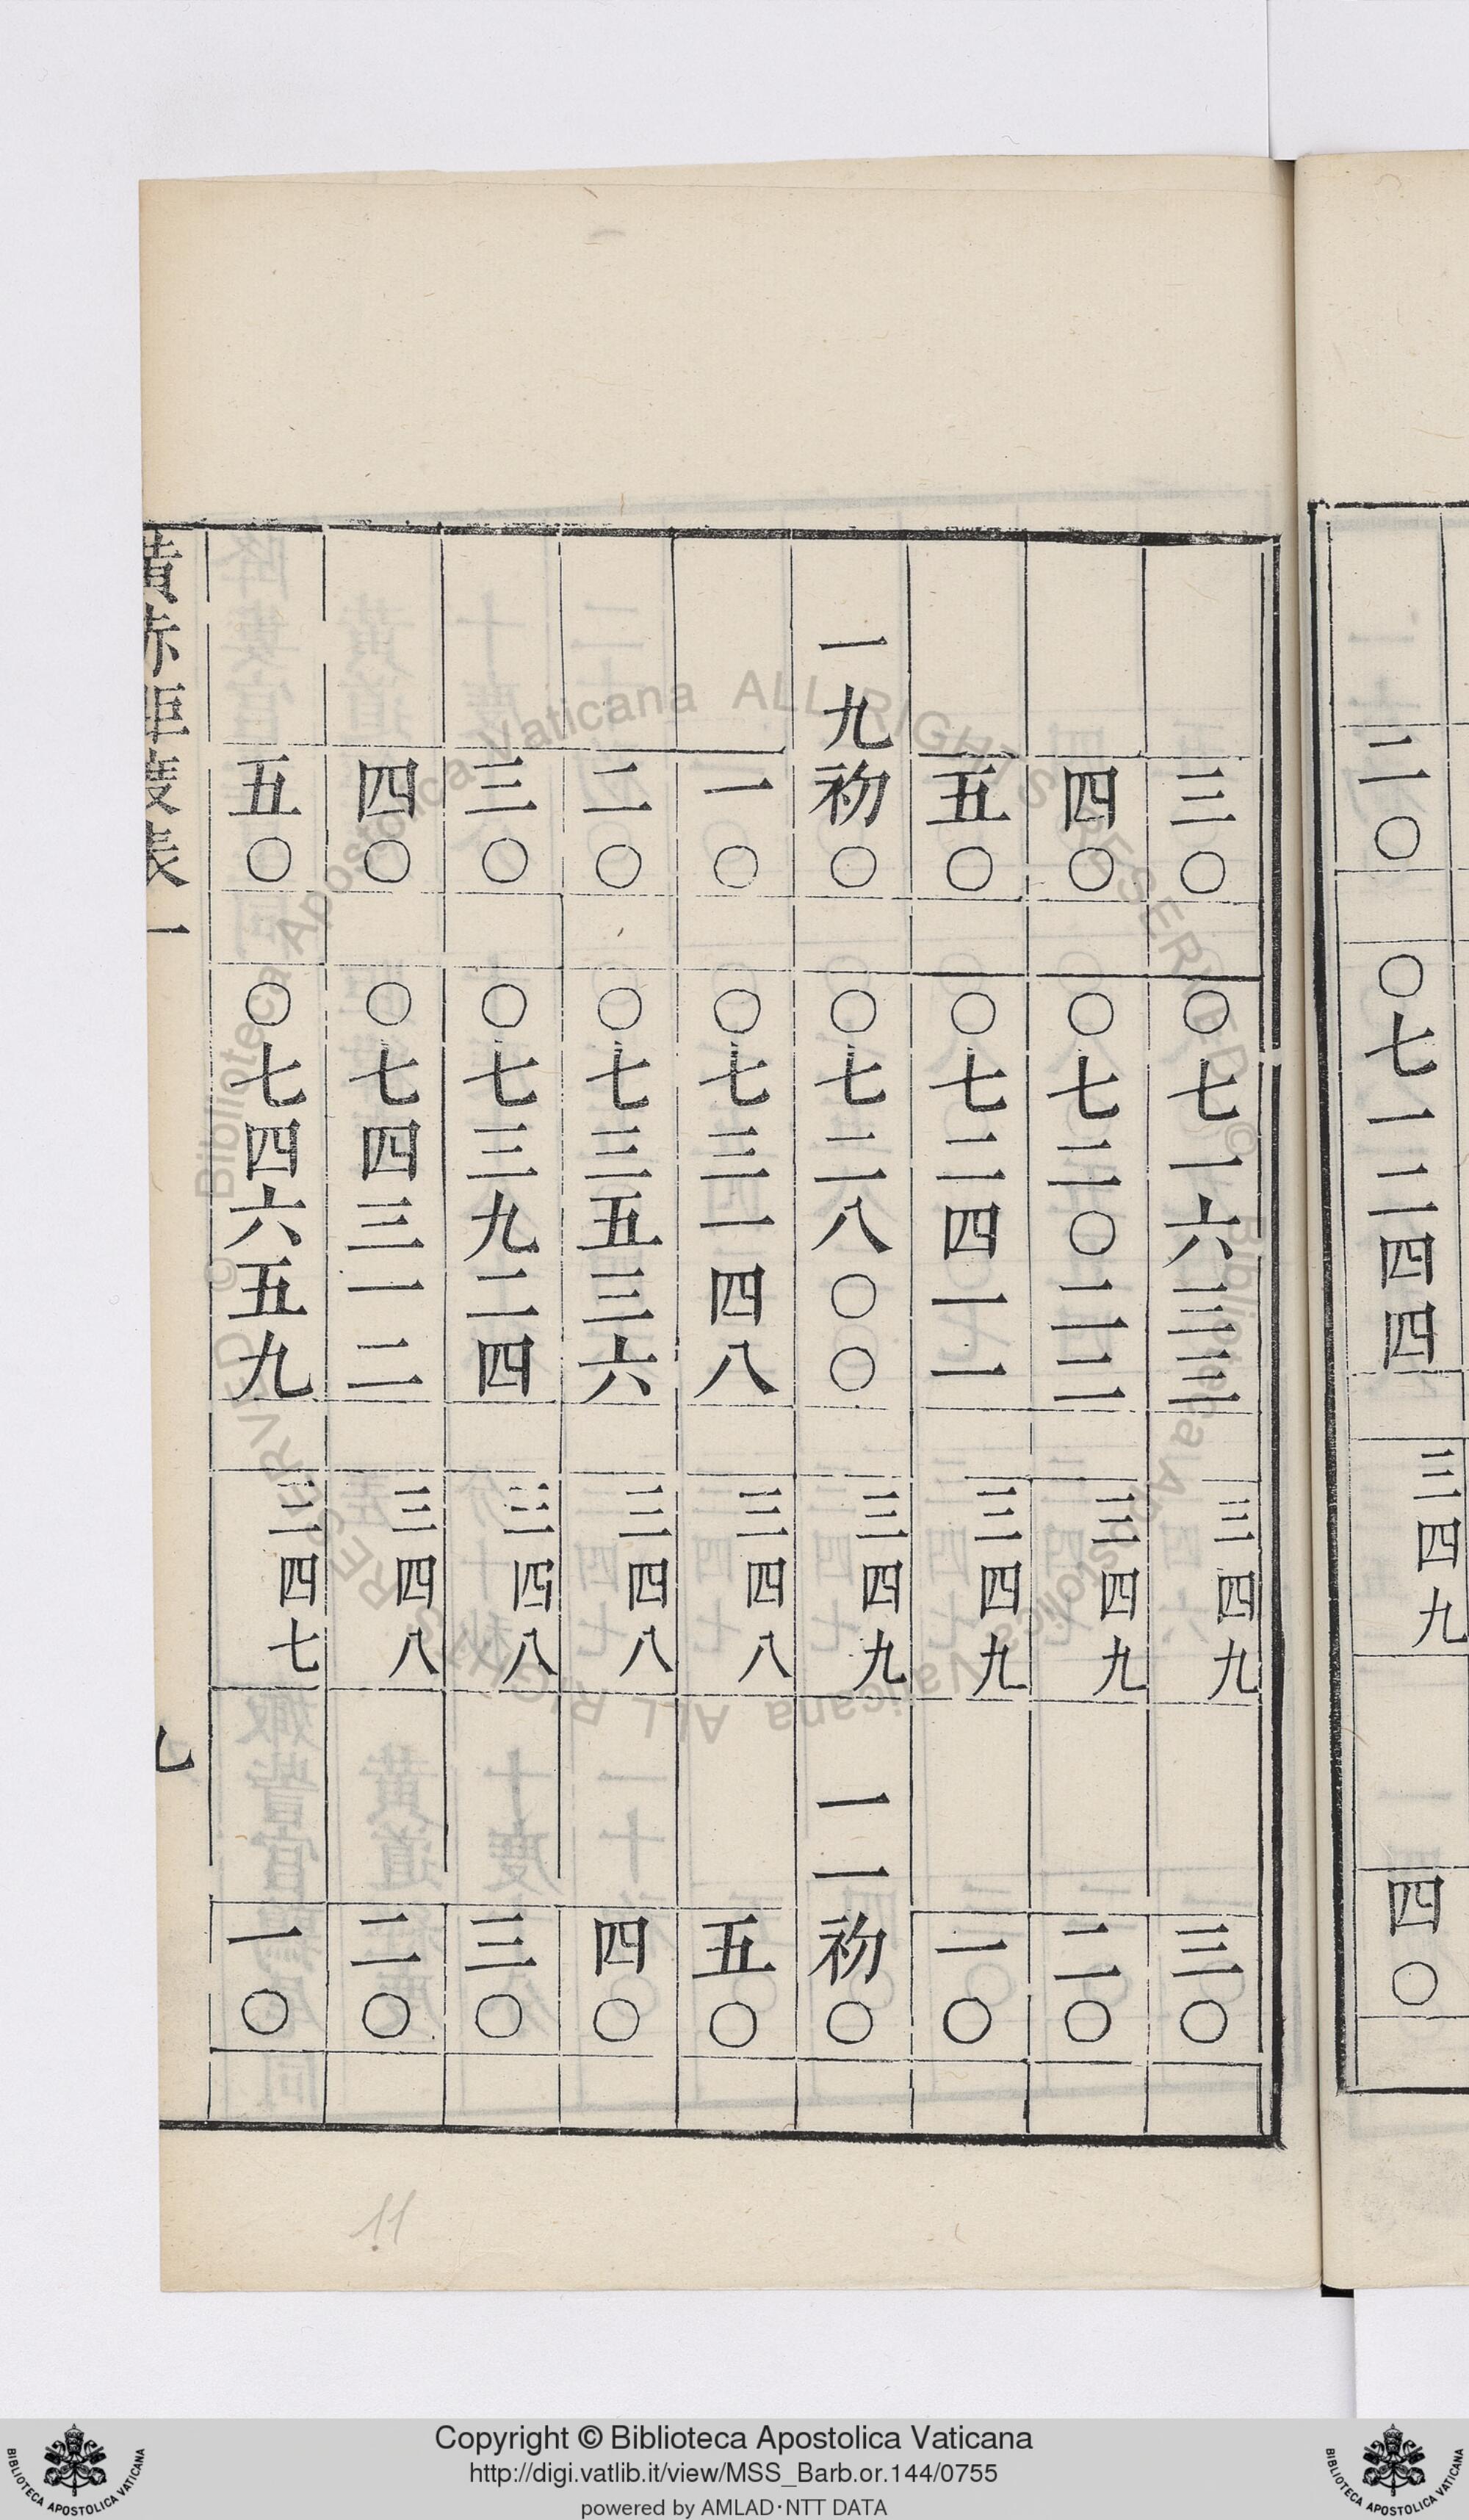 二〇 〇七一二四四 三四九 四〇
三〇 〇七一六三三 三四九 三〇
四〇 〇七二〇二二 三四九 二〇
五〇 〇七二四一一 三四九 一〇
一九 初〇 〇七二八〇〇 三四九 一一 初〇
一〇 〇七三一四八 三四八 五〇
二〇 〇七三五三六 三四八 四〇
三〇 〇七三九二四 三四八 三〇
四〇 〇七四三一二 三四八 二〇
五〇 〇七四六五九 三四七 一〇
黃赤距度表一
11
© Biblioteca Apostolica Vaticana ALL RIGHTS RESERVED
© Biblioteca Apostolica Vaticana ALL RIGHTS RESERVED
Copyright © Biblioteca Apostolica Vaticana
http://digi.vatlib.it/view/MSS_Barb.or.144/0755
powered by AMLAD·NTT DATA
BIBLIOTECA APOSTOLICA VATICANA
BIBLIOTECA APOSTOLICA VATICANA